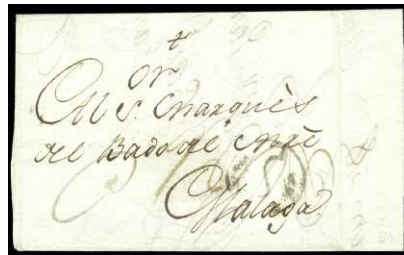 or
Al S. Marquès
del Bado del Mrè
Malaga